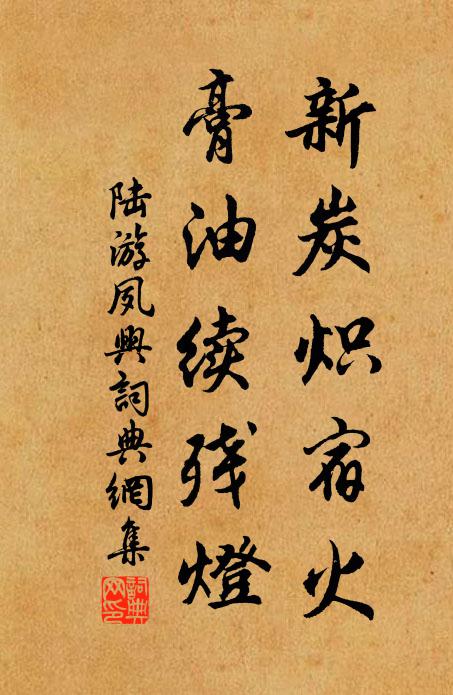 新炭炽宿火
膏油续残燈
陆游夙興詞典網集
詞典网印